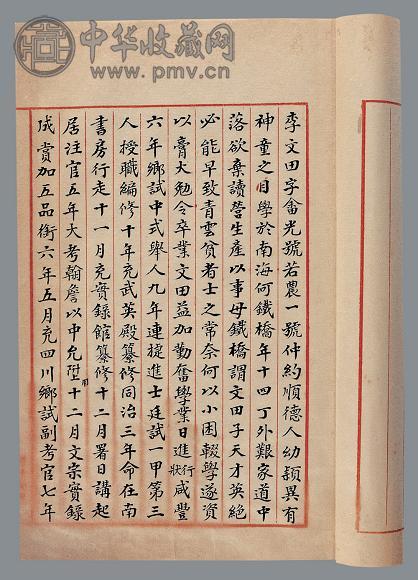 中华收藏网
www.pmv.cn
李文田字畬光號若農一號仲約順德人幼穎異有
神童之目學於南海何鐵橋年十四丁外艱家道中
落欲棄讀營生產以事母鐵橋謂文田子天才英絕
必能早致青雲貧者士之常奈何以小困輟學遂資
以膏火勉令卒業文田益加勤奮學業日進行狀咸豐
六年鄉試中式舉人九年連捷進士廷試一甲第三
人授職編修十年充武英殿纂修同治三年命在南
書房行走十一月充實錄館纂修十二月署日講起
居注官五年大考翰詹以中允陞用十二月文宗實錄
成賞加五品銜六年五月充四川鄉試副考官七年